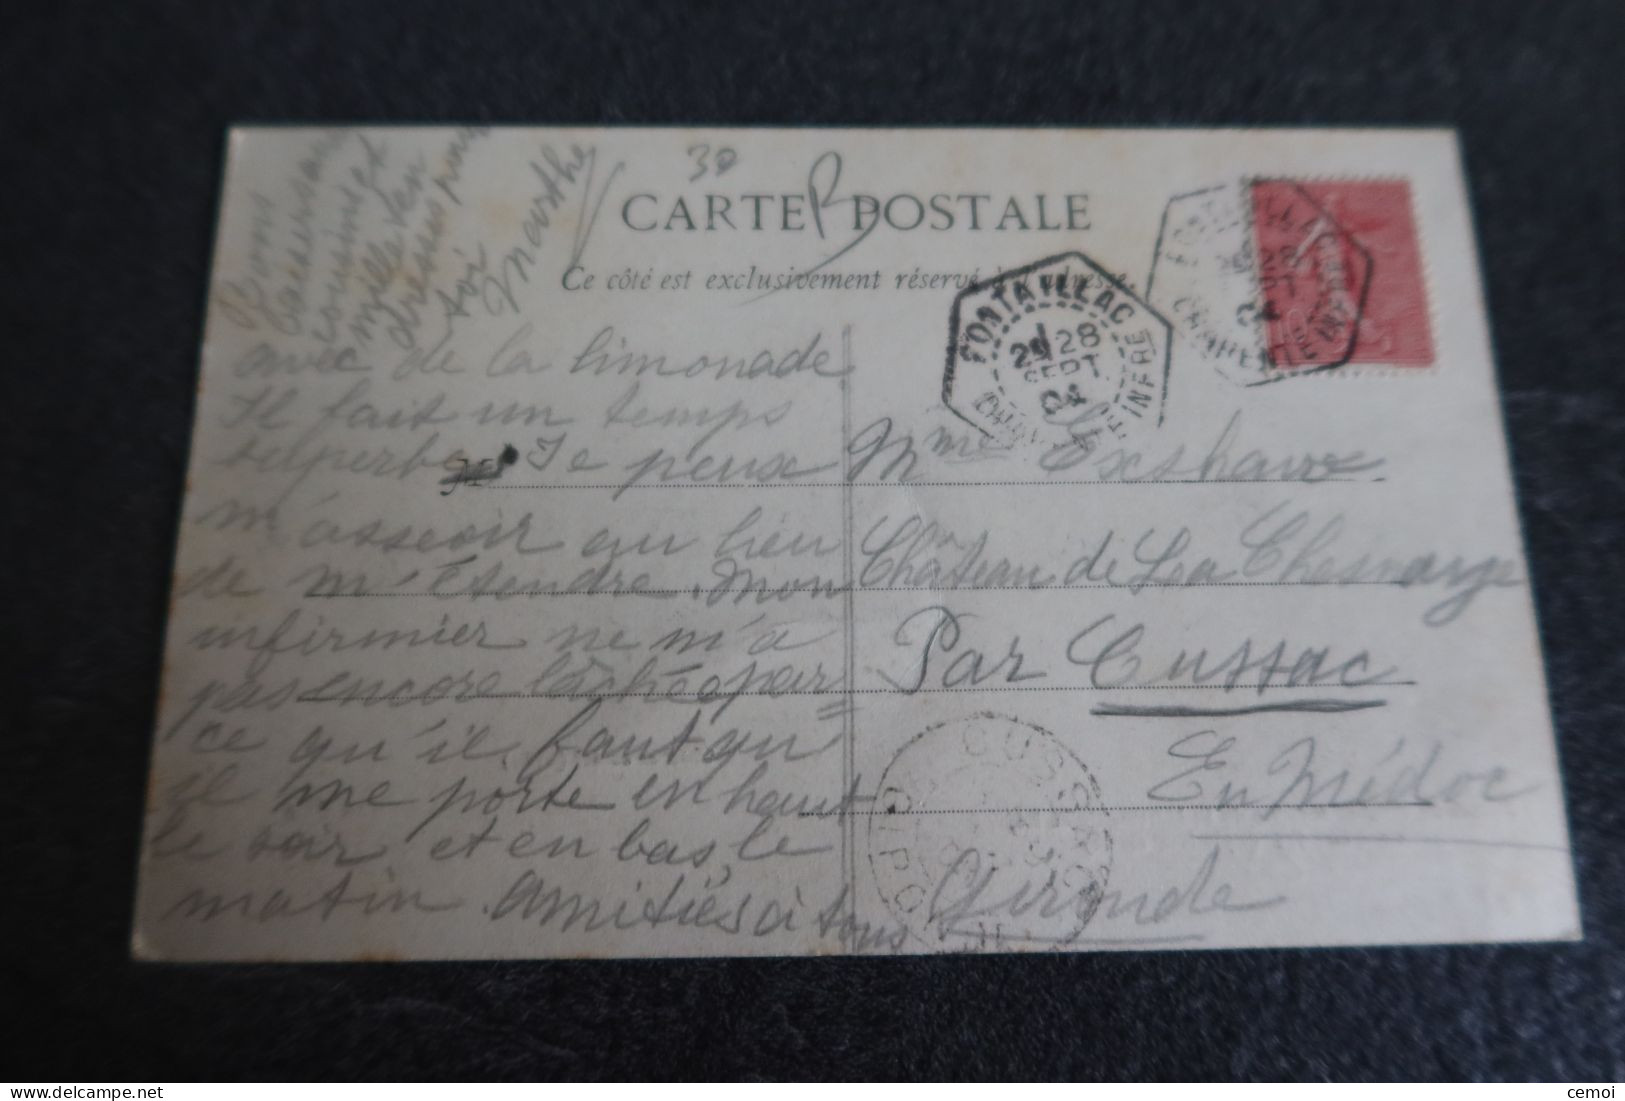 30
CARTE POSTALE
B
Ce côté est exclusivement réservé à l'adresse.
Bons
cousine et
mille ten
dresses pour
toi
Marthe
avec de la limonade
Il fait un temps
superbe Je peux
m'asseoir au lieu
de m'étendre. Mon
infirmier ne m'a
pas encore lâchée par
ce qu'il faut qu
il me porte en haut
le soir et en bas, le
matin. Amitiés à tous
FONTAILLAC
28
SEPT
04
INFRE
Mme Exshaw
Château de La Chesnaye
Par Cussac
En Médoc
Gironde
CUSSAC
cemoi